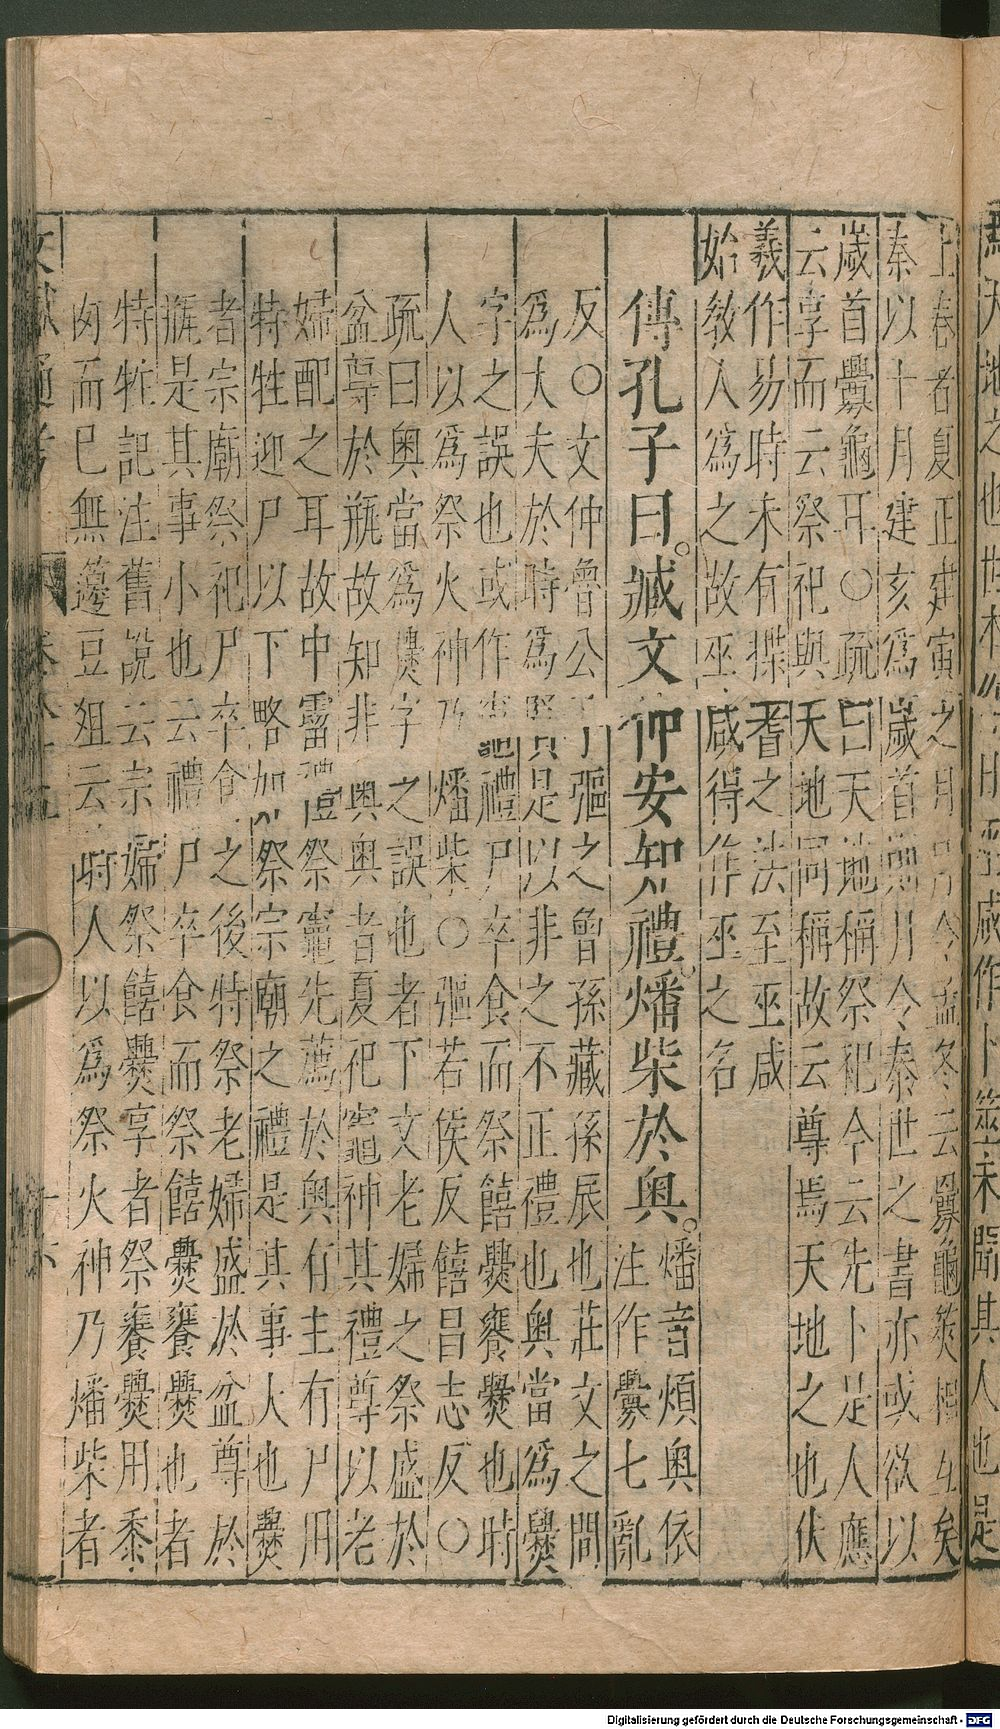 上春者夏正建寅之月月令孟冬云釁龜筴相互矣
秦以十月建亥爲歲首則月令秦世之書亦或欲以
歲首釁龜耳○疏曰天地稱祭祀今云先卜是人應
云享而云祭祀與天地同稱故云尊焉天地之也伏
羲作易時未有揲蓍之法至巫咸
始教人爲之故巫咸得作巫之名
傳孔子曰臧文仲安知禮燔柴於奥
燔音煩奥依
注作爨七亂
反○文仲魯公子彄之曾孫藏孫辰也莊文之間
爲大夫於時爲賢是以非之不正禮也奥當爲爨
字之誤也或作竈禮尸卒食而祭饎爨饔爨也時
人以爲祭火神乃燔柴○彄若侯反饎昌志反○
疏曰奥當爲爨字之誤也者下文老婦之祭盛於
盆尊於瓶故知非奥奥者夏祀竈神其禮尊以老
婦配之耳故中霤禮祭竈先薦於奥有主有尸用
特牲迎尸以下略如祭宗廟之禮是其事大也爨
者宗廟祭祀尸卒食之後特祭老婦盛於盆尊於
瓶是其事小也云禮尸卒食而祭饎爨饔爨也者
特牲記注舊說云宗婦祭饎爨享者祭饔爨用黍
肉而巳無籩豆俎云時人以爲祭火神乃燔柴者
Digitalisierung gefördert durch die Deutsche Forschungsgemeinschaft - DFG